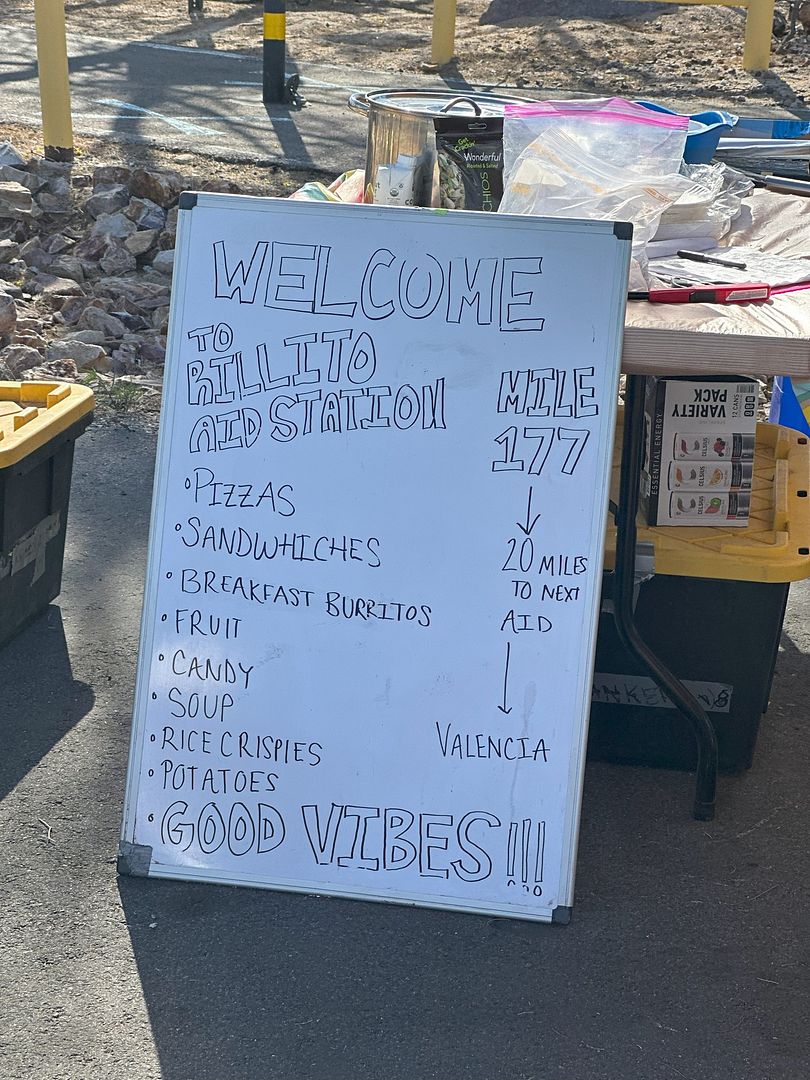 WELCOME
TO
RILLITO
AID STATION
• PIZZAS
• SANDWHICHES
• BREAKFAST BURRITOS
• FRUIT
• CANDY
• SOUP
• RICE CRISPIES
• POTATOES
• GOOD VIBES!!!
MILE
177
↓
20 MILES
TO NEXT
AID
↓
VALENCIA
Get Crackin'
Wonderful
Roasted & Salted
VARIETY
PACK
12 CANS
ESSENTIAL ENERGY
CELSIUS
CELSIUS
CELSIUS